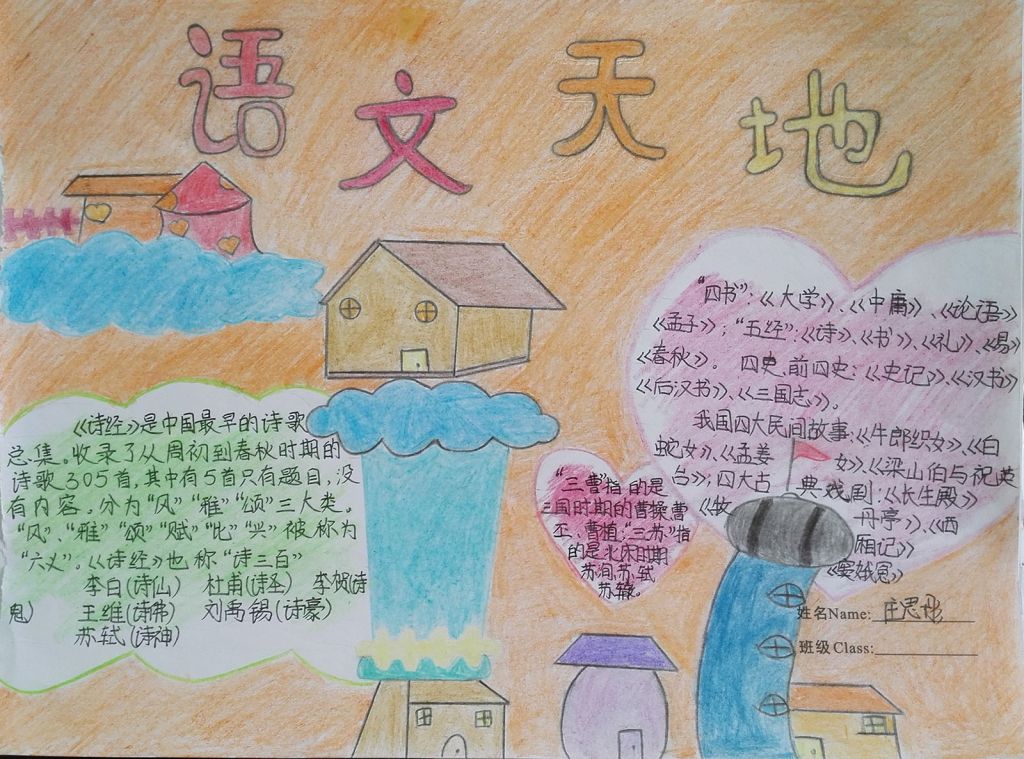 语文天地
《诗经》是中国最早的诗歌
总集。收录了从周初到春秋时期的
诗歌305首,其中有5首只有题目,没
有内容。分为“风”“雅”“颂”三大类。
“风”、“雅”“颂”“赋”“比”“兴”被称为
“六义”。《诗经》也称“诗三百”
李白(诗仙) 杜甫(诗圣) 李贺(诗
鬼) 王维(诗佛) 刘禹锡(诗豪)
苏轼(诗神)
“三曹”指的是
三国时期的曹操,曹
丕、曹植;“三苏”指
的是北宋时期
苏洵,苏轼
苏辙。
“四书”:《大学》、《中庸》、《论语》
《孟子》;“五经”:《诗》、《书》、《礼》、《易》
《春秋》。 四史,前四史:《史记》、《汉书》
《后汉书》、《三国志》。
我国四大民间故事:《牛郎织女》、《白
蛇女》、《孟姜女》、《梁山伯与祝英
台》;四大古典戏剧:《长生殿》
《牡丹亭》、《西
厢记》
《窦娥冤》
姓名Name:
班级Class: